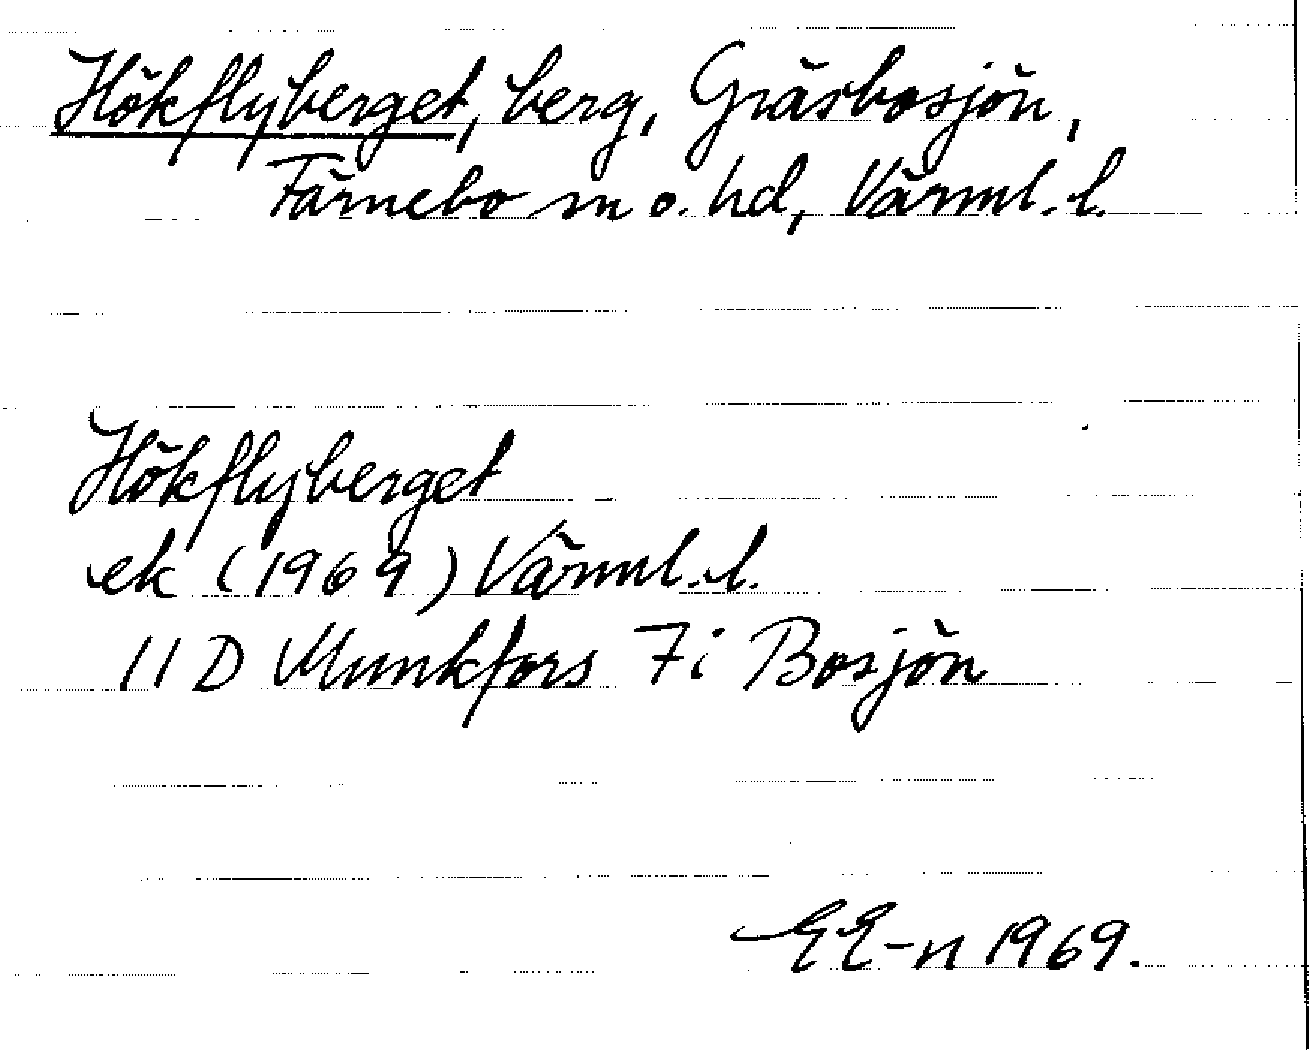 Hökflyberget, berg, Gräsbosjön,
Färnebo sn o. hd, Värml. l.
Hökflyberget
ek (1969) Värml. l.
11 D Munkfors 7i Bosjön
EE-n 1969.